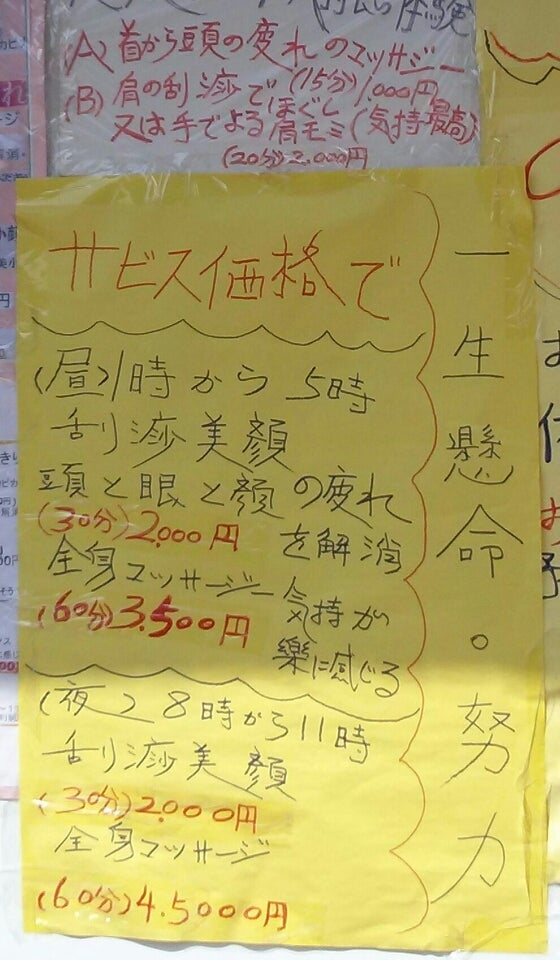 (A) 首から頭の疲れのマッサジー
(15分)1,000円
(B) 肩の刮痧でほぐし
又は手でよる肩モミ(気持最高)
(20分)2,000円
サビス価格で
(昼)1時から5時
刮痧美顔
頭と眼と顔の疲れ
を解消
(30分)2,000円
全身マッサージー
(60分)3.500円
気持が
樂に感じる
(夜)8時から11時
刮痧美顔
(30分)2.000円
全身マッサージ
(60分)4.5000円
一生懸命。努力